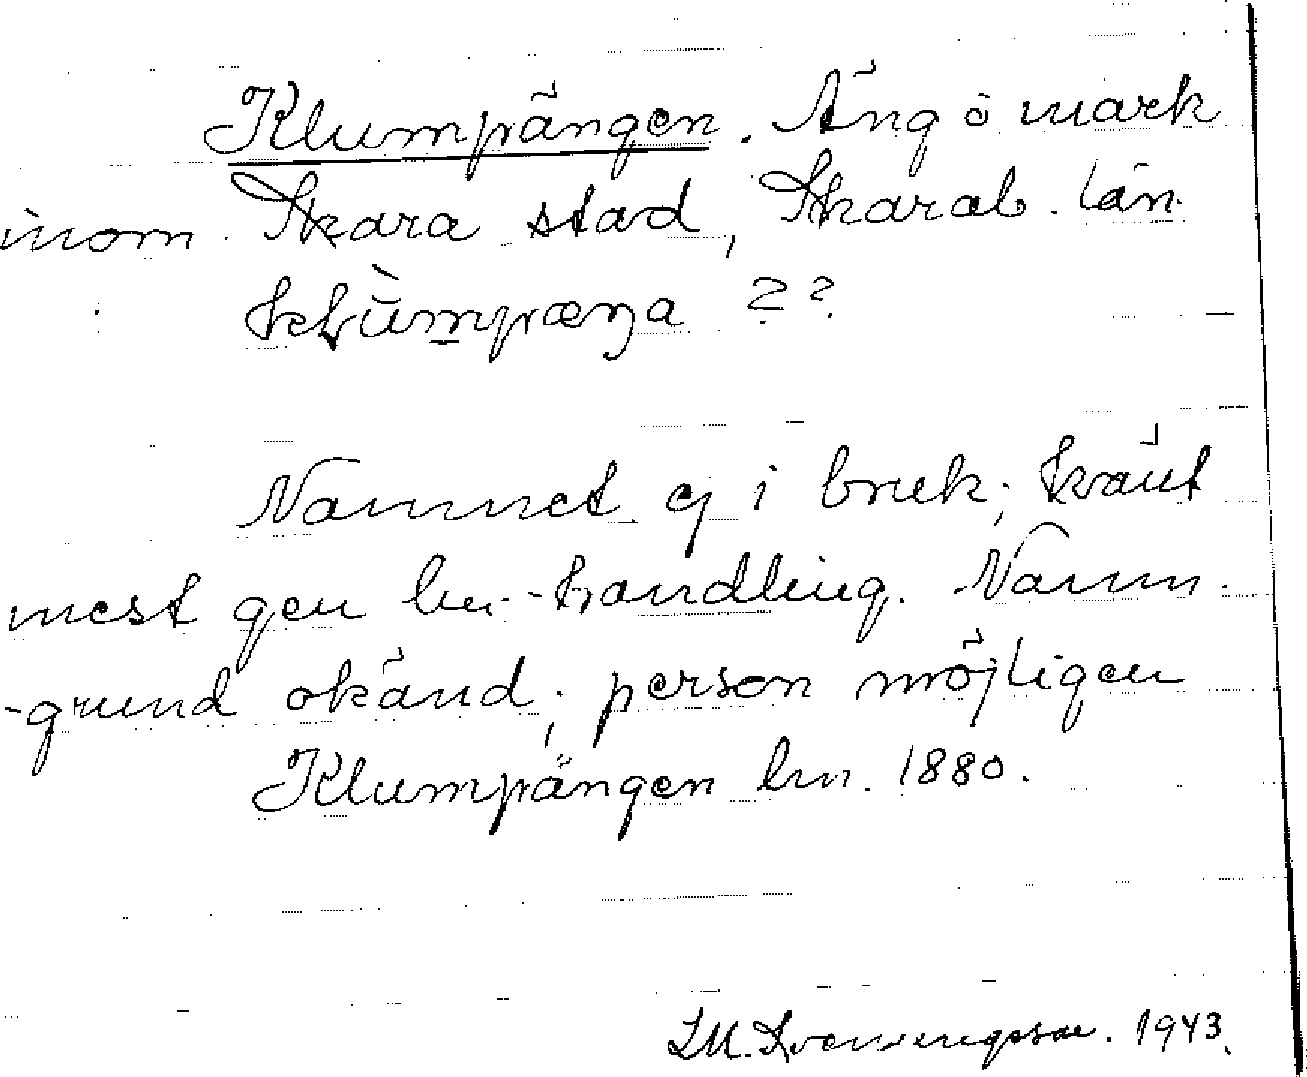 Klumpängen. Äng o mark
inom Skara stad, Skarab. län.
Namnet ej i bruk; känt
mest gen lm-handling. Namn-
-grund okänd; person möjligen
Klumpängen lm. 1880.
1943.